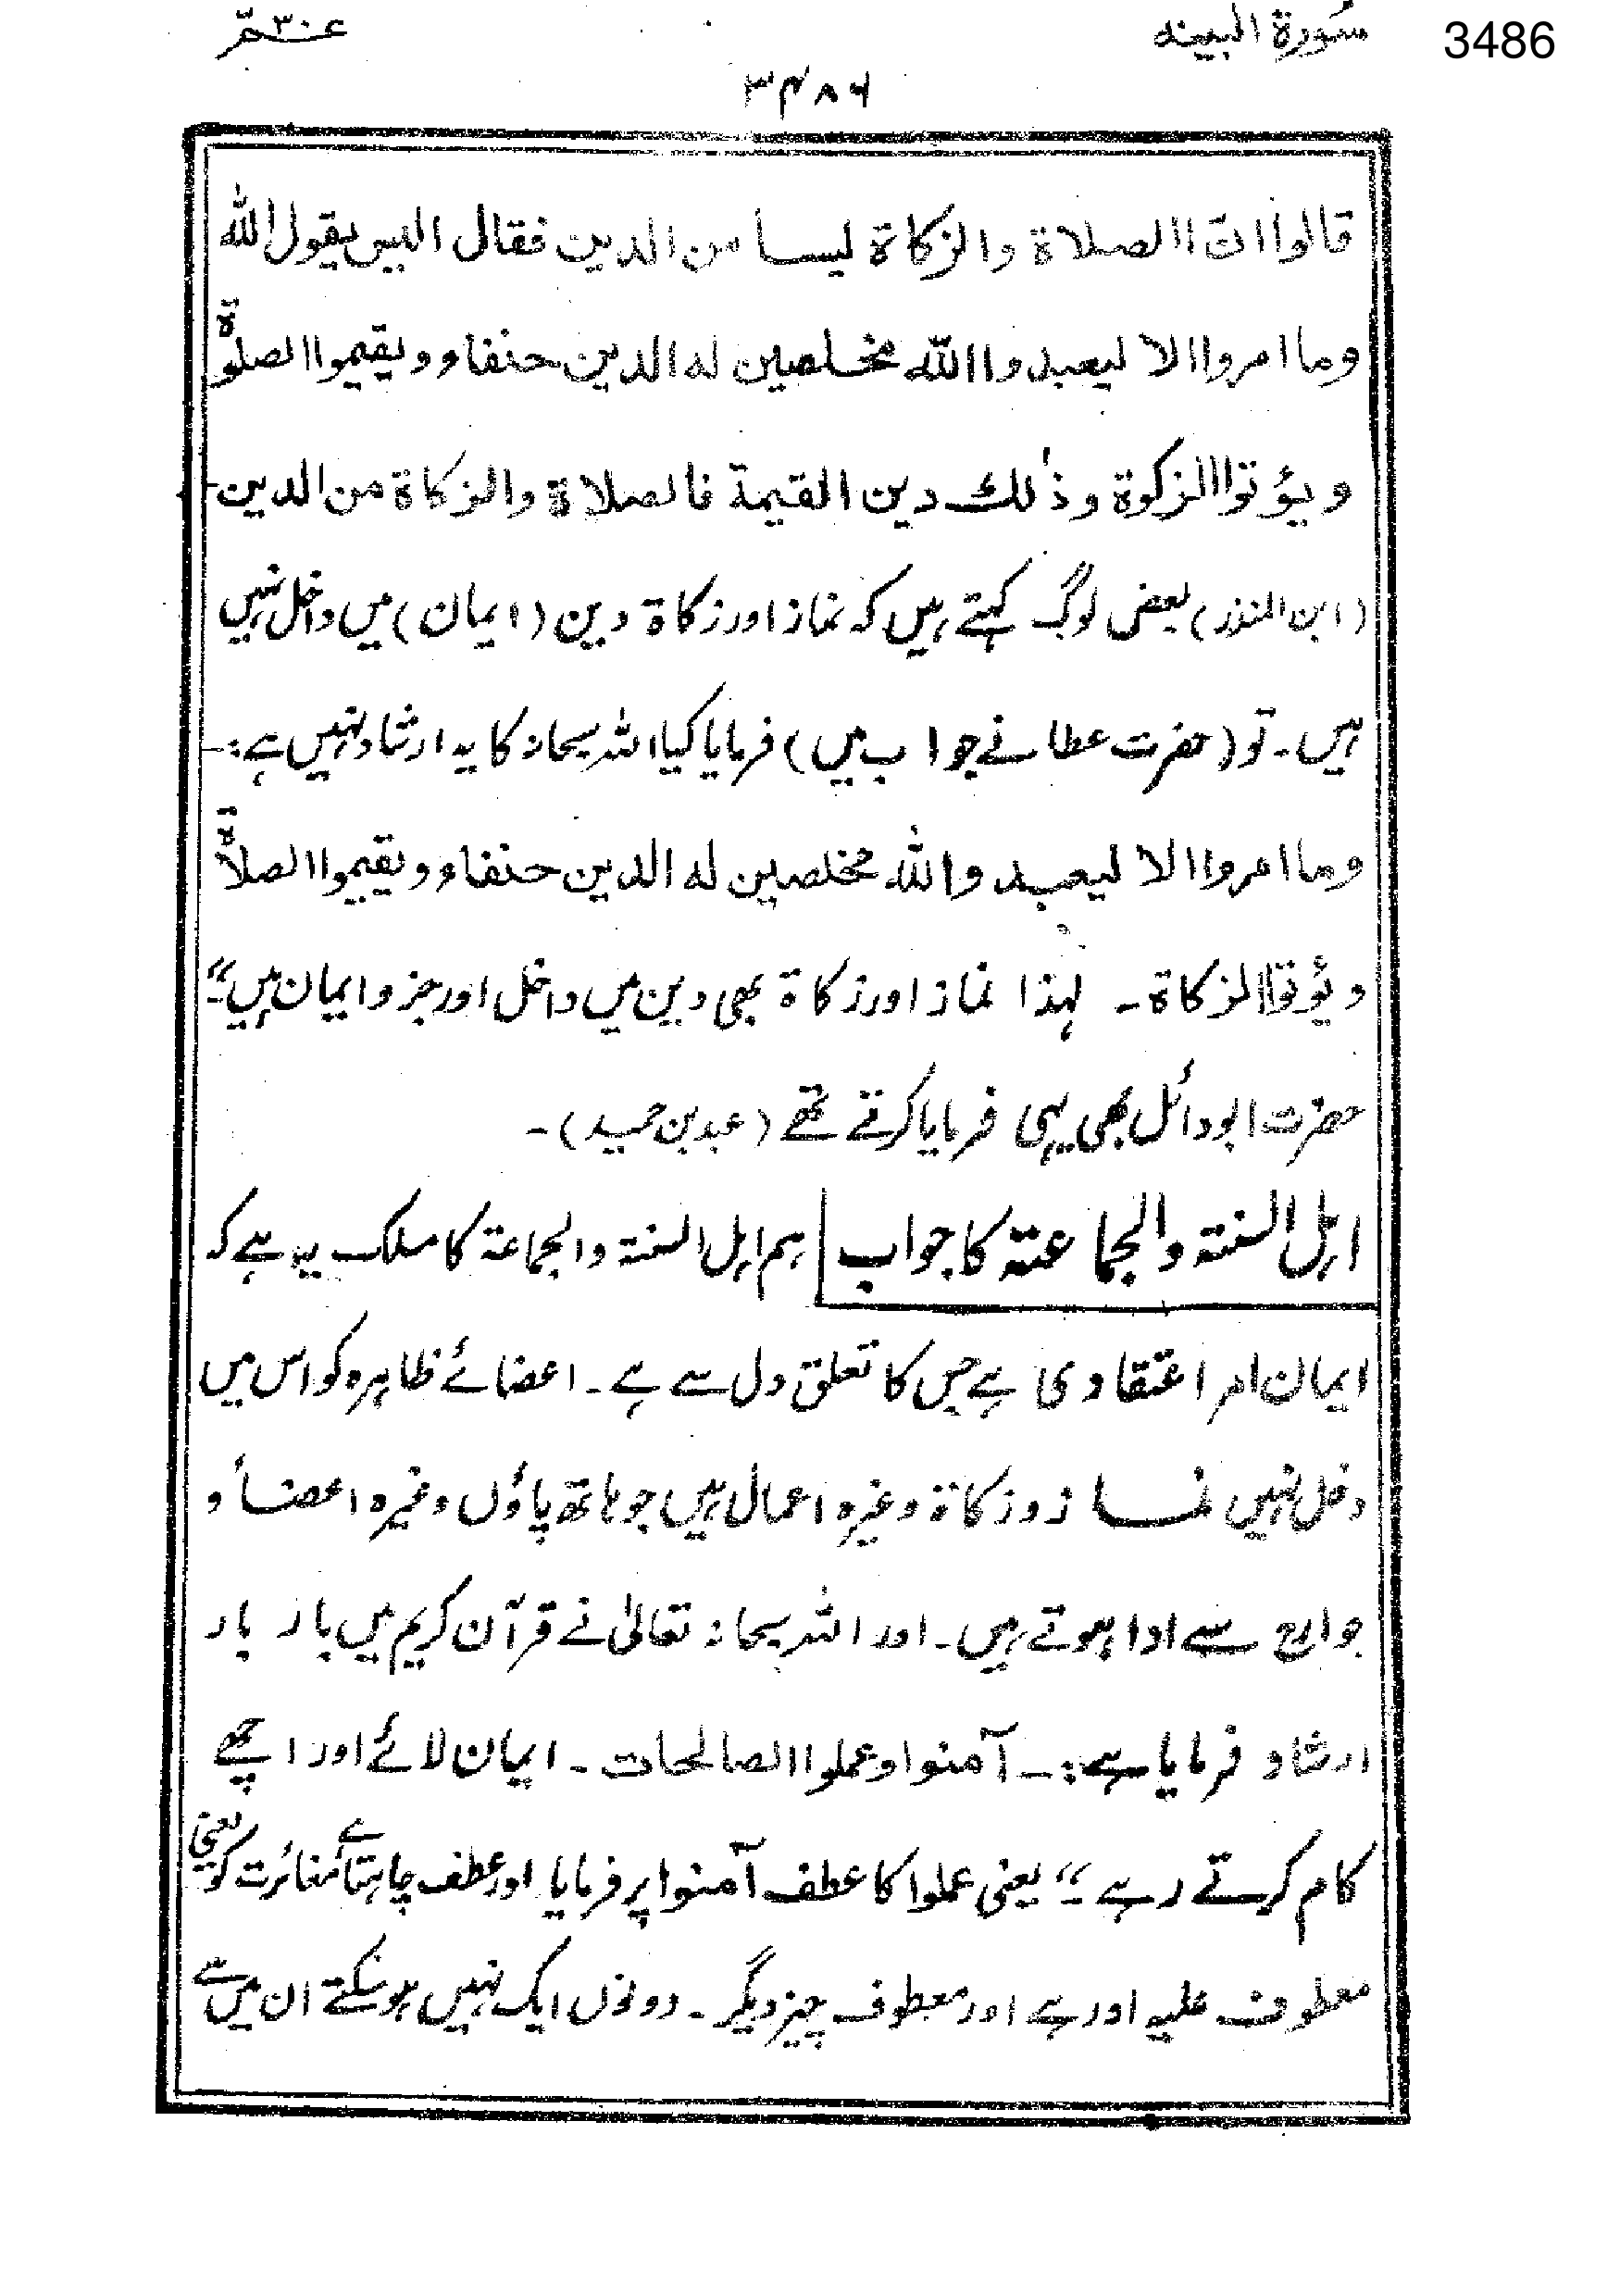 3486
سُورة البينه
عــ۳۰ــمّ
۳۴۸۶
قالوا انّ االصلاۃ والزکاۃ لیسا من الدین فقال الیس یقول اللہ
وما امروا الا لیعبد وا اللہ مخلصین لہ الدین حنفاء و یقیموا الصلوٰۃ
و یؤ توا الزکوۃ و ذٰلک دین القیمۃ فالصلاۃ والزکاۃ من الدین
(ابن المنذر) بعض لوگ کہتے ہیں کہ نماز اور زکاۃ دین (ایمان) میں داخل نہیں
ہیں۔ تو (حضرت عطا نے جواب میں) فرمایا کیا اللہ سبحانہ کا یہ ارشاد نہیں ہے:۔
وما امروا الا لیعبد واللہ مخلصین لہ الدین حنفاء و یقیموا الصلاۃ
و یؤتوا الزکاۃ۔ لہذا نماز اور زکاۃ بھی دین میں داخل اور جز و ایمان ہیں"۔
حضرت ابو وائل بھی یہی فرمایا کرتے تھے (عبد بن حمید)۔
اہل السنتہ والجماعتہ کا جواب ہم اہل السنۃ والجماعۃ کا مسلک یہ ہے کہ
ایمان امر اعتقادی ہے جس کا تعلق دل سے ہے۔ اعضائے ظاہرہ کو اس میں
دخل نہیں نماز و زکاۃ وغیرہ اعمال ہیں جو ہاتھ پاؤں وغیرہ اعضأ و
جوارح سے ادا ہوتے ہیں۔ اور اللہ سبحانہ تعالیٰ نے قرآن کریم میں بار بار
ارشاد فرمایا ہے:۔ آمنوا وعملوا الصالحات۔ ایمان لائے اور اچھے
کام کرتے رہے"۔ یعنی عملوا کا عطف آمنوا پر فرمایا اور عطف چاہتا ہے مغائرت کو یعنی
معطوف علیہ اور ہے اور معطوف چیز دیگر۔ دونوں ایک نہیں ہو سکتے ان میں سے